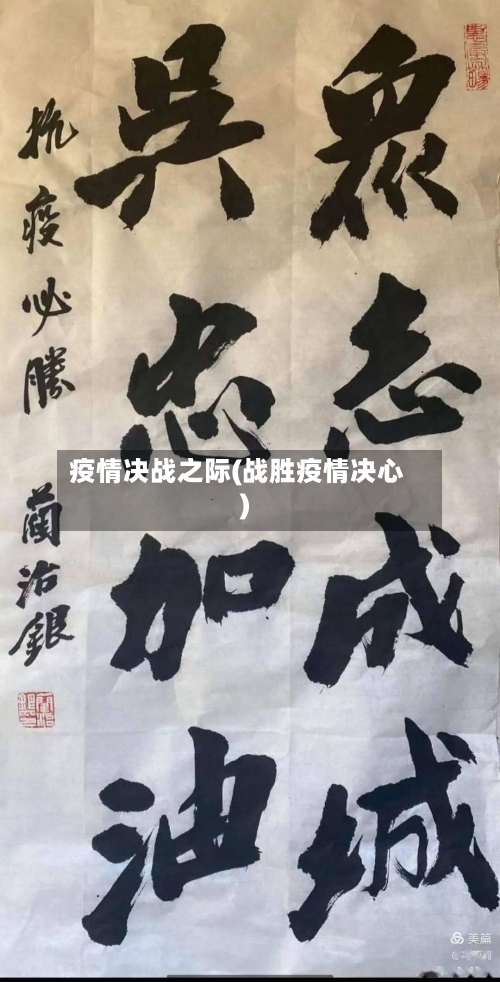 眾志成城
吳忠加油
抗疫必勝
藺治銀
疫情决战之际(战胜疫情决心
)
美篇